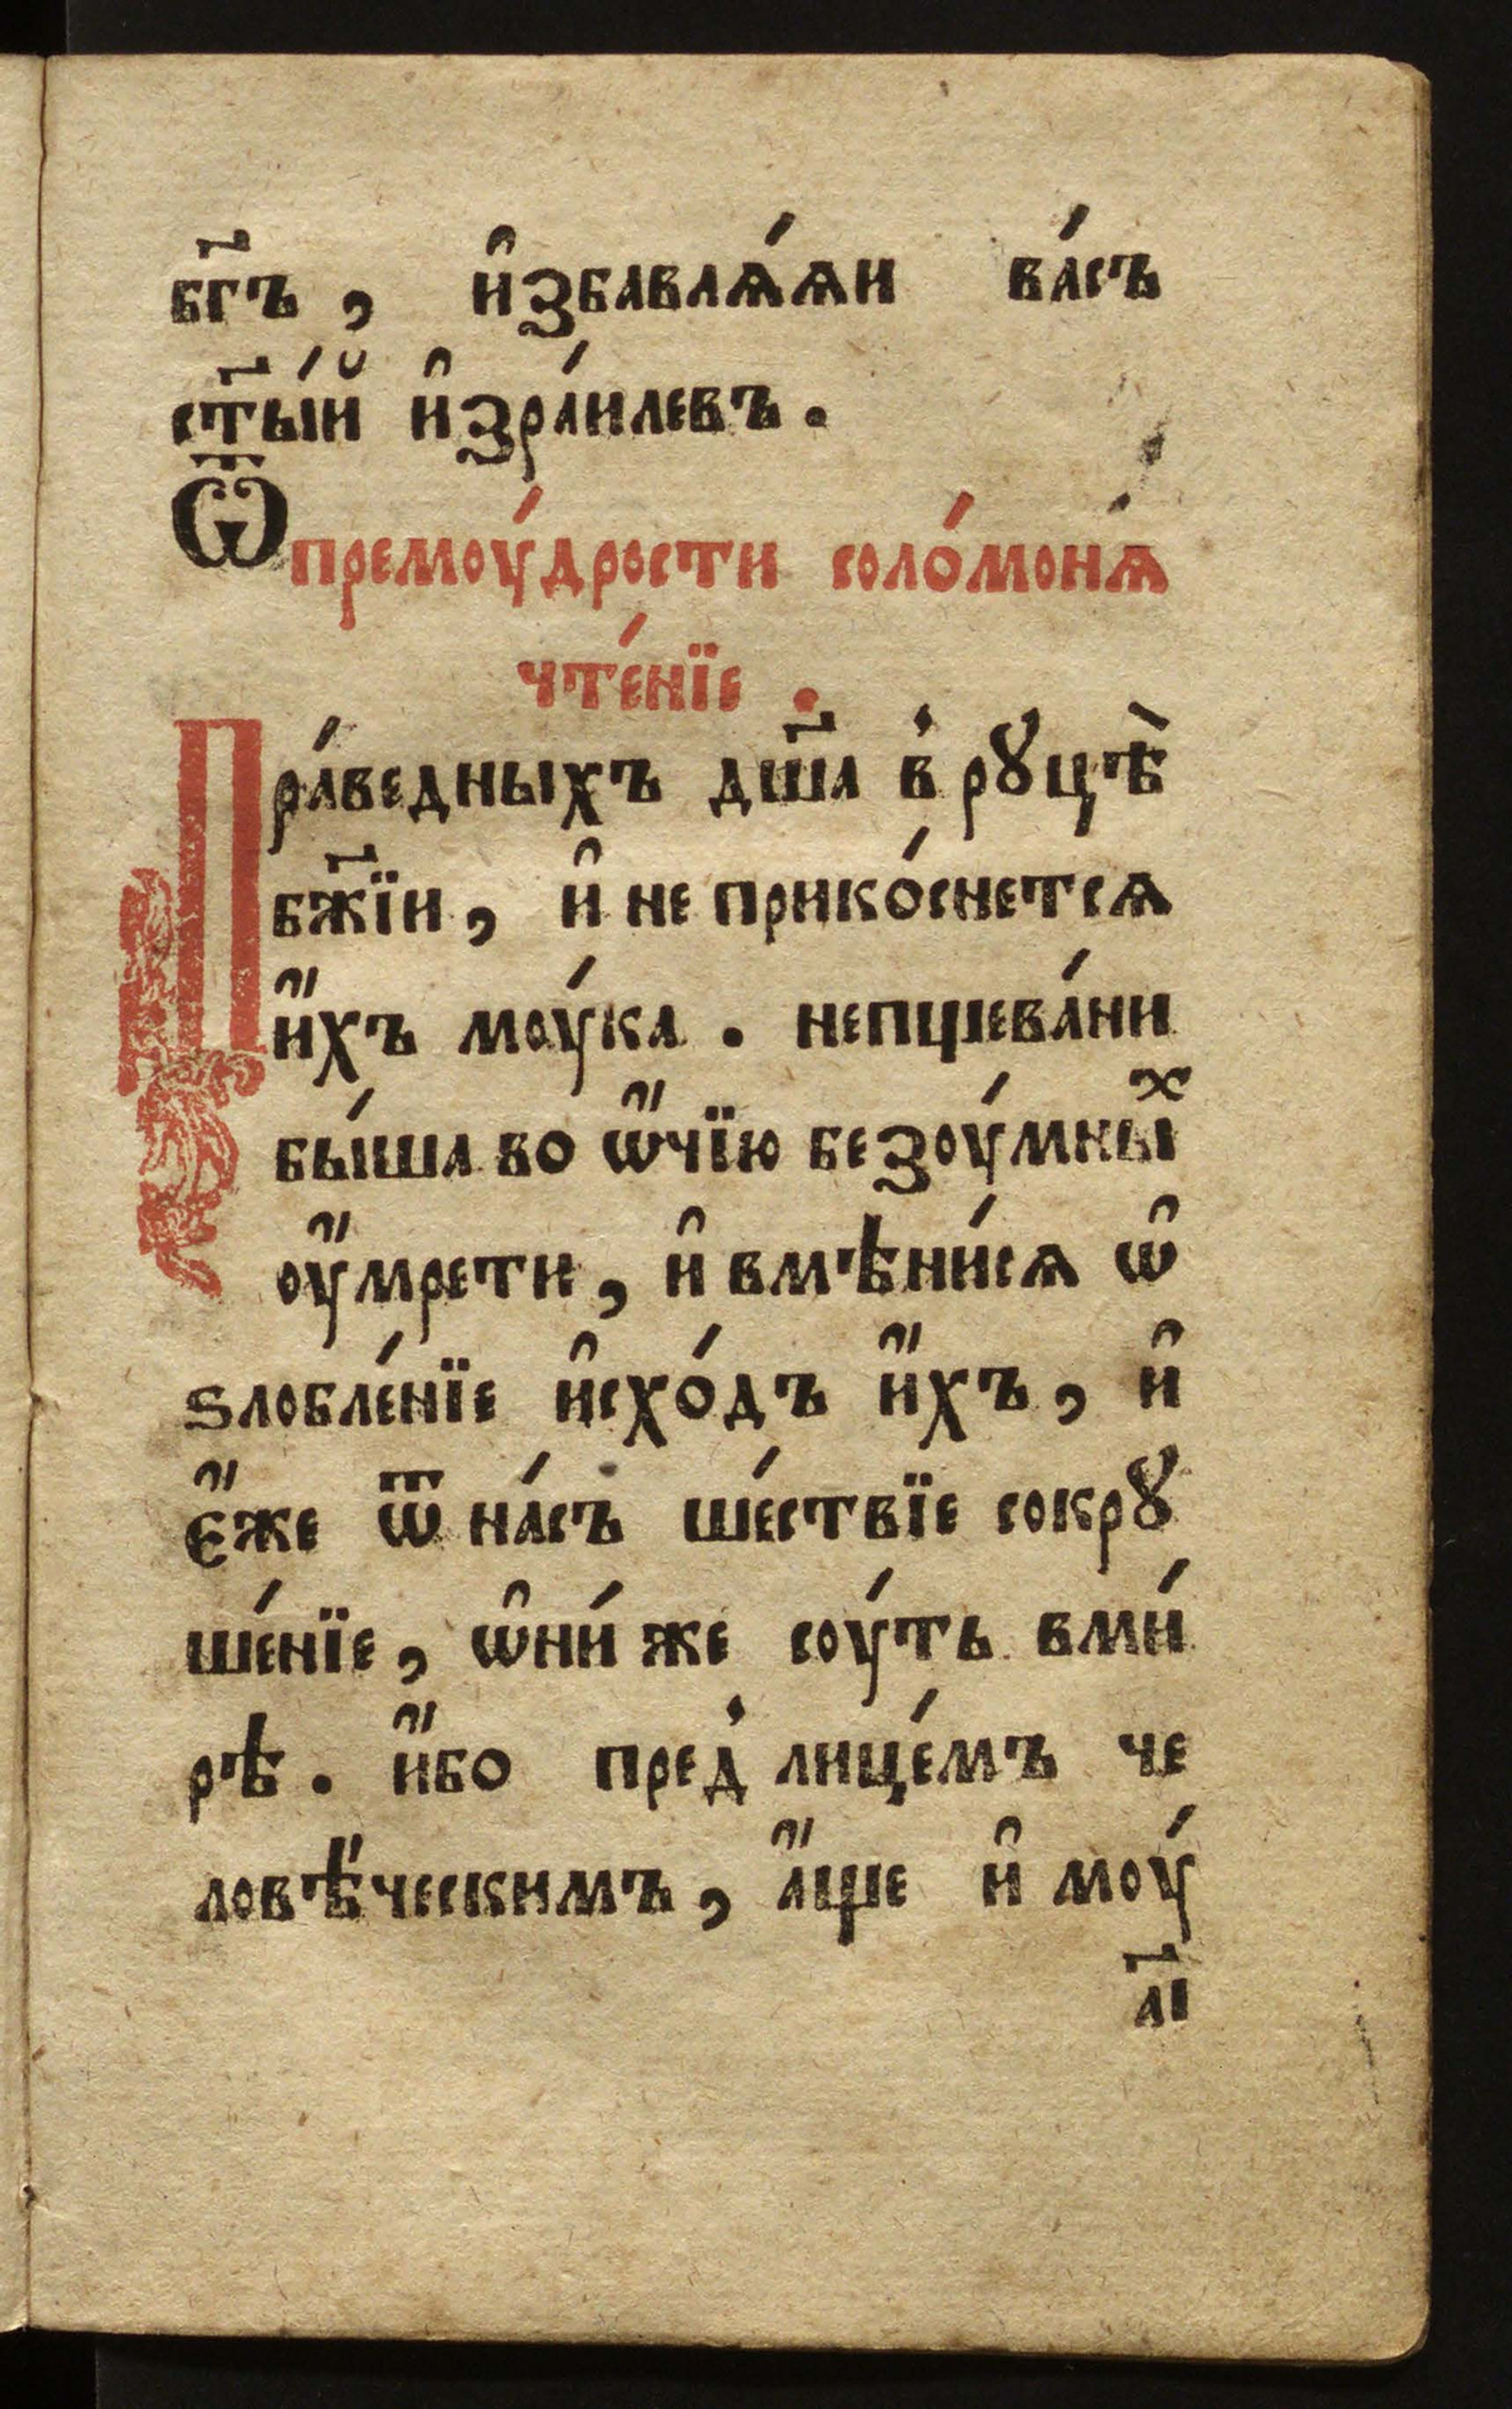 бг҃ъ , и҆збавлѧ́ѧи ва́съ
ст҃ы́й и҆зра́илевъ .
Ѿ премоу́дрости соло́монѧ
чте́нїе .
Пра́ведныхъ дш҃а в̾ рꙋцѣ̀
бж҃їи , и҆ не прико́снетсѧ
и҆́хъ моу́ка . непщева́ни
бы́ша во ѡ҆́чїю безоу́мныⷯ
оу҆́мрети , и҆ вмѣни́сѧ ѡ҆
ѕлобле́нїе и҆схо́дъ и҆́хъ , и҆
є҆́же ѿ на́съ ше́ствїе сокрꙋ
ше́нїе , ѡ҆ни́ же соу́ть вми́
рѣ . и҆́бо пред̾ лице́мъ че
ловѣ́ческимъ , а҆́ще и҆ моу́
а҃і